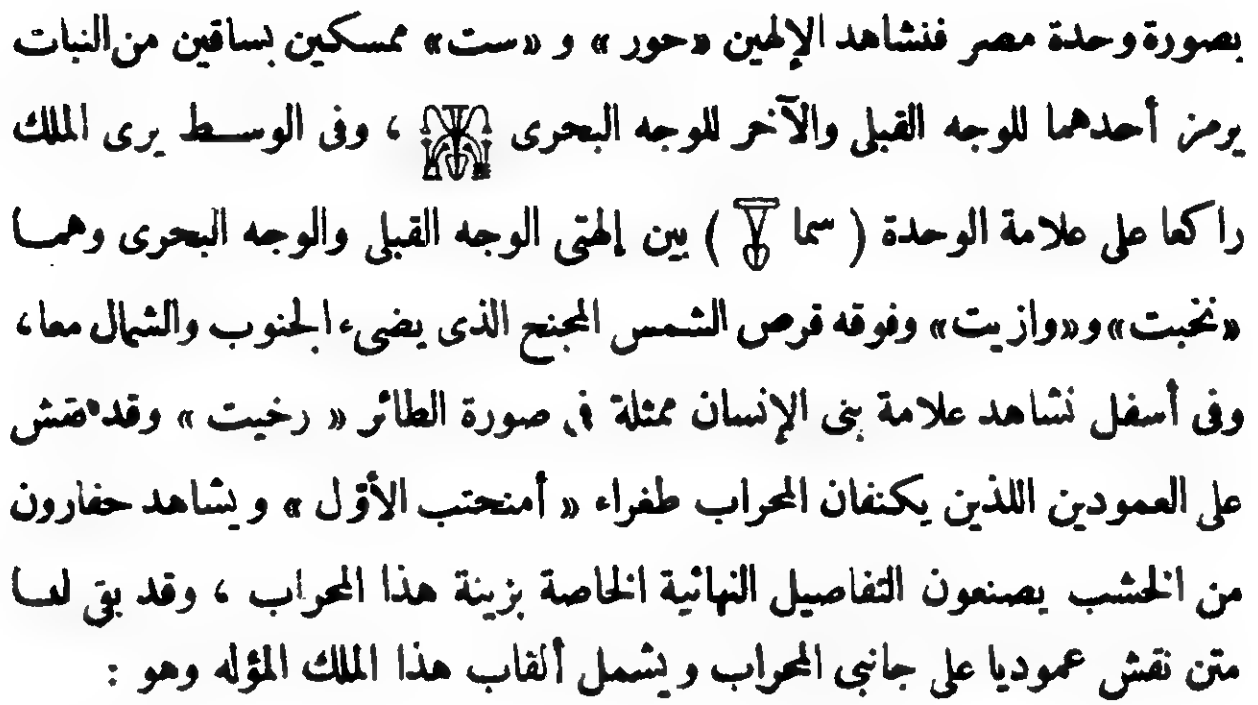 بصورة وحدة مصر فنشاهد الإلهين «حور» و «ست» ممسكين بساقين من النبات
يرمز أحدهما للوجه القبلى والآخر للوجه البحرى ، وفى الوسط يرى الملك
راكعا على علامة الوحدة ( سما ) بين إلهتى الوجه القبلى والوجه البحرى وهمـا
«نخبت» و«وازيت» وفوقه قرص الشمس المجنح الذى يضىء الجنوب والشمال معا،
وفى أسفل نشاهد علامة بنى الإنسان ممثلة فى صورة الطائر « رخيت » وقد نقش
على العمودين اللذين يكنفان المحراب طغراء « أمنحتب الأوّل » ويشاهد حفارون
من الخشب يصنعون التفاصيل النهائية الخاصة بزينة هذا المحراب ، وقد بقى لنـا
متن نقش عموديا على جانبى المحراب ويشمل ألقاب هذا الملك المؤله وهو :